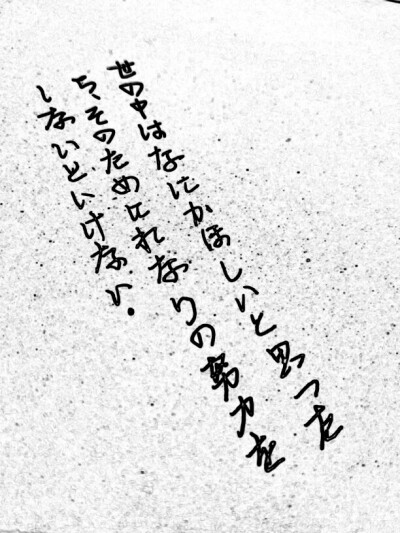 世の中はなにかほしいと思った
ら、そのためにれなりの努力を
しないといけない。